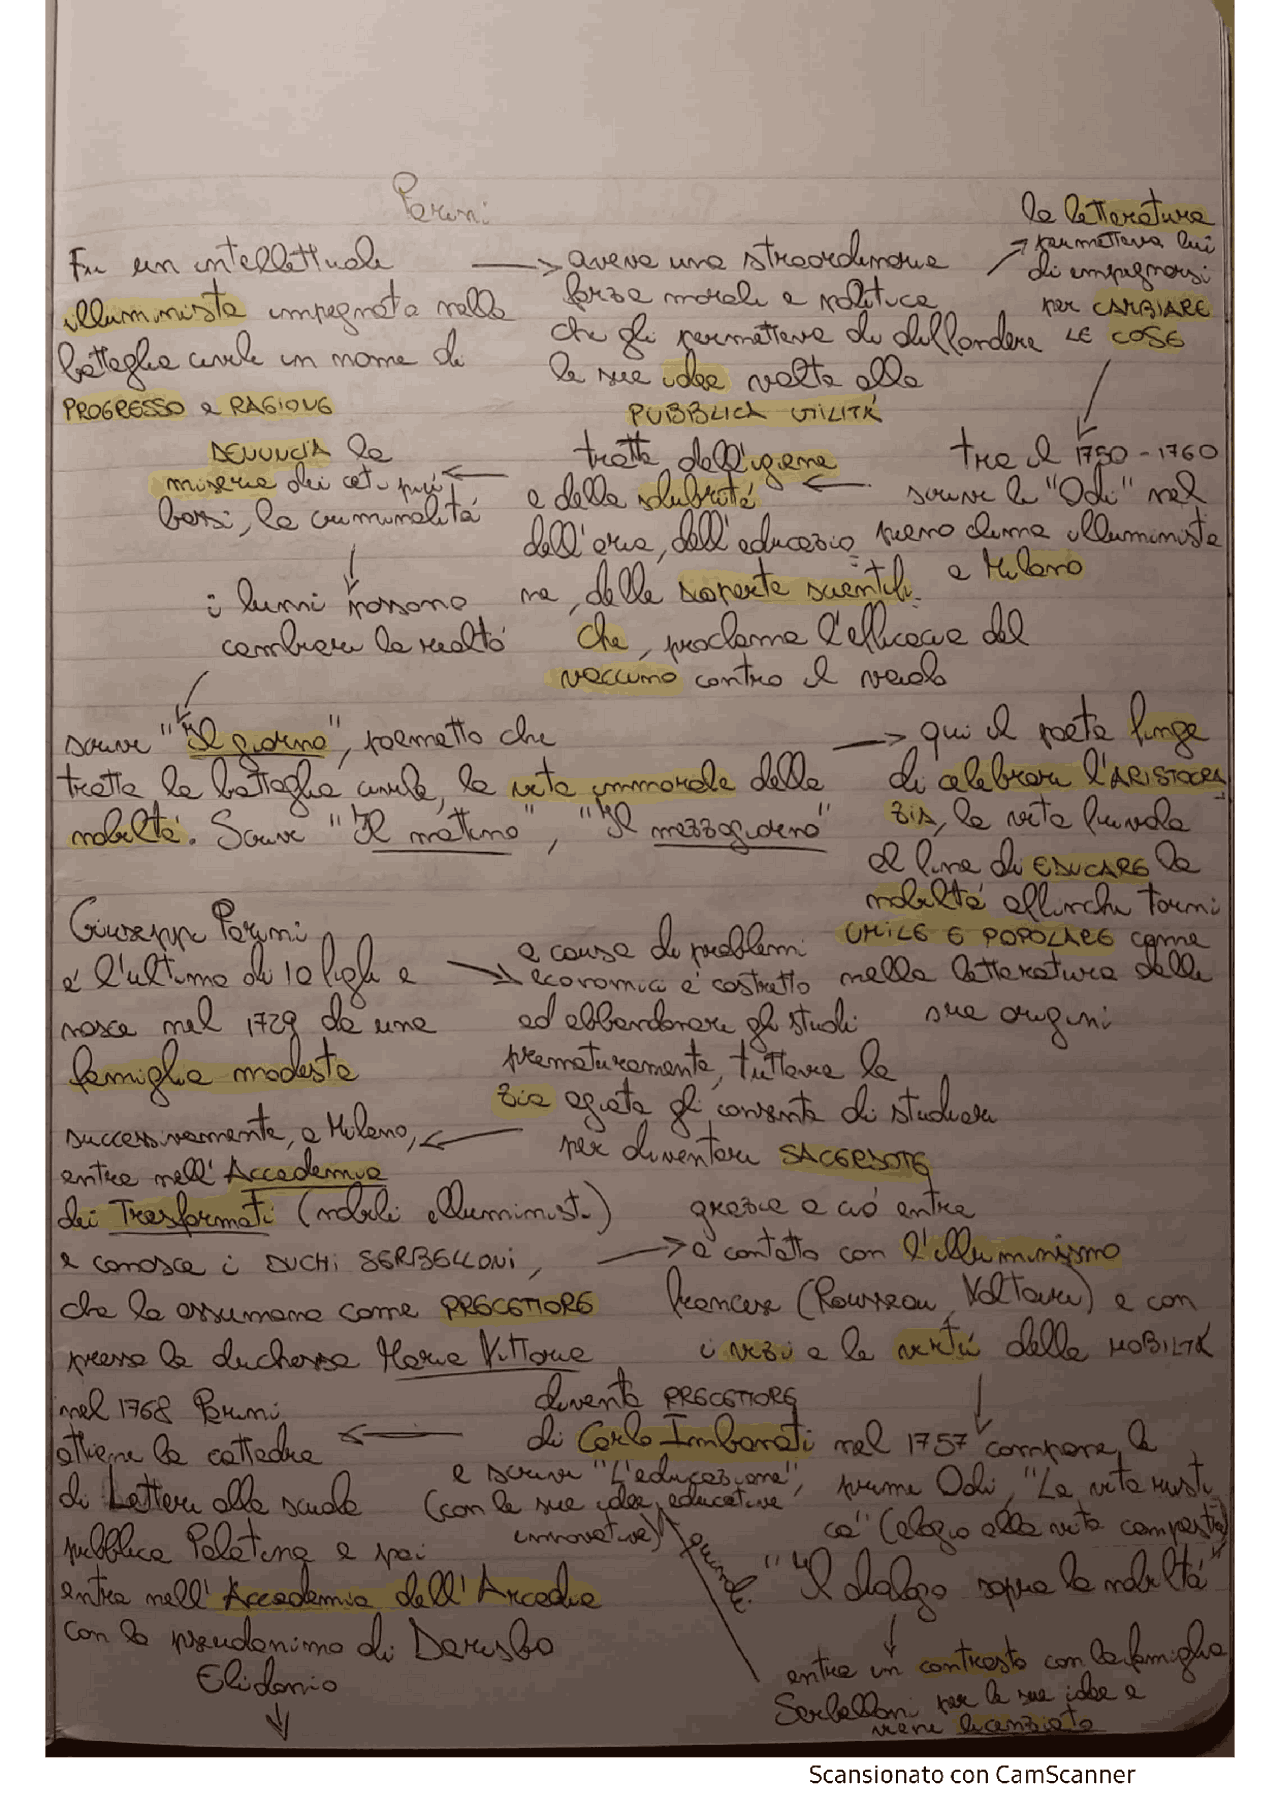 Parini
Fu un intellettuale
illuminista impegnato nella
battaglia civile in nome di
PROGRESSO e RAGIONE
→ aveva una straordinaria
forza morale e politica
che gli permetteva di diffondere
le sue idee volte alla
PUBBLICA UTILITÀ
↗ la letteratura
permetteva lui
di impegnarsi
per CAMBIARE
LE COSE
↓
tra il 1750 - 1760
scrive le "Odi" nel
pieno clima illuminista
a Milano
←
tratta dell'igiene
e della salubrità
dell'aria, dell'educazio
ne, delle scoperte scientifi
che, proclama l'efficacia del
vaccino contro il vaiolo
←
DENUNCIA la
miseria dei ceti più
bassi, la criminalità
↓
i lumi possono
cambiare la realtà
↓
scrive "Il giorno", poemetto che
tratta la battaglia civile, la vita immorale della
nobiltà. Scrive "Il mattino", "Il mezzogiorno"
→ qui il poeta finge
di celebrare l'ARISTOCRA
ZIA, la vita frivola
al fine di EDUCARE la
nobiltà affinché torni
UMILE E POPOLARE come
nella letteratura delle
sue origini
Giuseppe Parini
è l'ultimo di 10 figli e
nasce nel 1729 da una
famiglia modesta
→ a causa di problemi
economici è costretto
ad abbandonare gli studi
prematuramente, tuttavia la
zia agiata gli consente di studiare
per diventare SACERDOTE
←
successivamente, a Milano,
entra nell'Accademia
dei Trasformati (nobili illuministi)
e conosce i DUCHI SERBELLONI,
che lo assumono come PRECETTORE
presso la duchessa Maria Vittoria
→ grazie a ciò entra
a contatto con l'illuminismo
francese (Rousseau, Voltaire) e con
i vizi e le virtù della NOBILTÀ
↓
nel 1757 compone le
prime Odi, "La vita rusti
ca" (elogio alla vita campestre)
"Il dialogo sopra la nobiltà"
↓
entra in contrasto con la famiglia
Serbelloni per le sue idee e
viene licenziato
quindi
diventa PRECETTORE
di Carlo Imbonati
e scrive "L'educazione",
(con le sue idee educative
innovative)
←
nel 1768 Parini
ottiene la cattedra
di Lettere alle scuole
pubblica Palatina e poi
entra nell'Accademia dell'Arcadia
con lo pseudonimo di Darisbo
Elidonio
↓
Scansionato con CamScanner